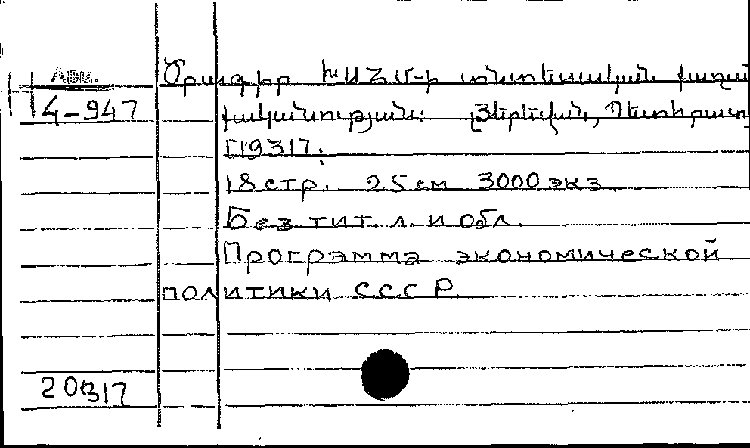 Арм.
4-947
Ծրագիր ԽՍՀՄ-ի տնտեսական քաղա
քականության: Յերեվան, Պետհրատ
[1931].
18 стр. 25 см 3000 экз.
Без тит. л. и обл.
Программа экономической
политики СССР.